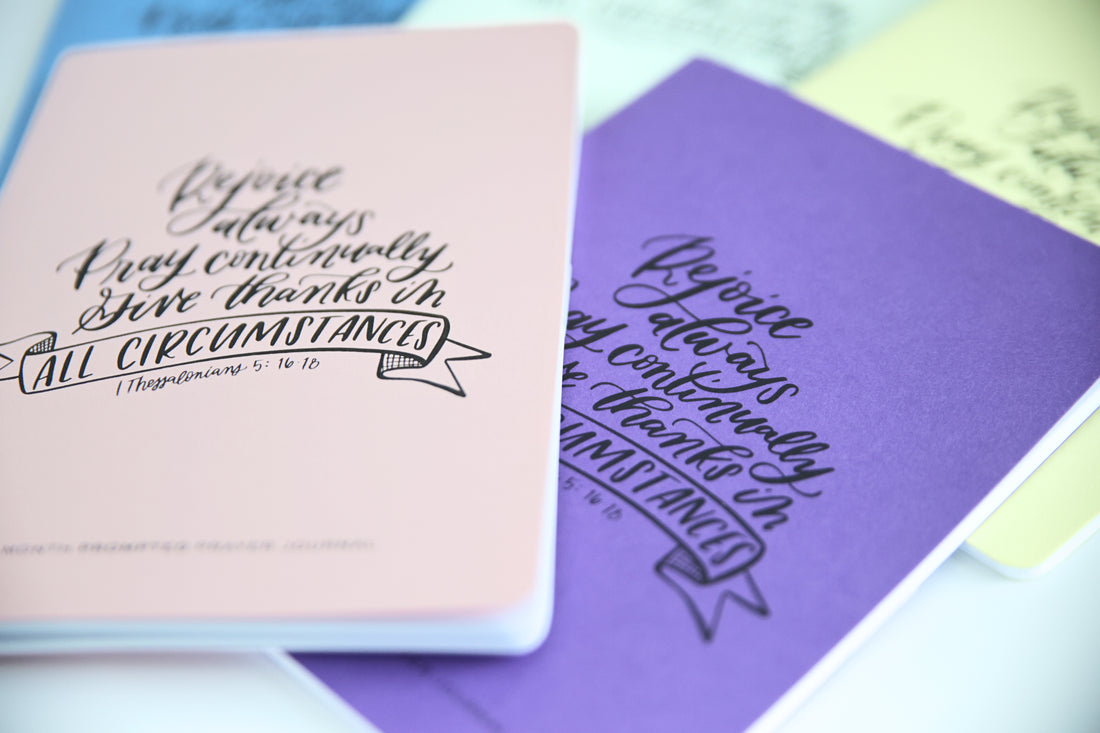 Rejoice
always
Pray continually
Give thanks in
ALL CIRCUMSTANCES
1 Thessalonians 5: 16-18
MONTH PROMPTED PRAYER JOURNAL
Rejoice
always
ay continually
thanks in
CUMSTANCES
5: 16-18